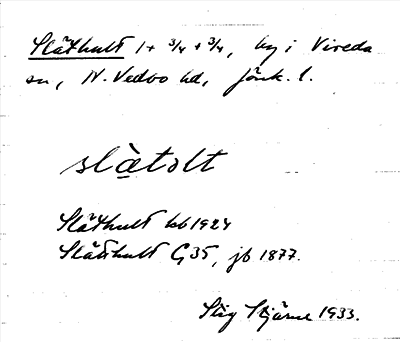 Släthult 1 + 3/4 + 3/4, by i Vireda
sn, N. Vedbo hd, Jönk. l.
slàtolt
Släthult kb 1924
Slätthult G35, jb 1877.
Stig Stjärne 1933.